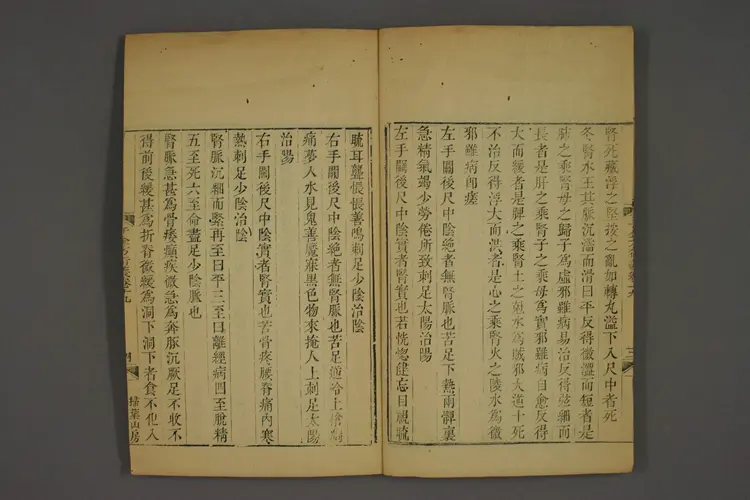 腎死藏浮之堅按之亂如轉丸益下入尺中者死
冬腎水王其脈沉濡而滑曰平反得微濇而短者是
肺之乘腎母之歸子爲虛邪雖病易治反得弦細而
長者是肝之乘腎子之乘母爲實邪雖病自愈反得
大而緩者是脾之乘腎土之尅水爲賊邪大逆十死
不治反得浮大而洪者是心之乘腎火之陵水爲微
邪雖病即瘥
左手關後尺中陰絶者無腎脈也苦足下熱兩髀裏
急精氣竭少勞倦所致刺足太陽治陽
左手關後尺中陰實者腎實也苦恍惚健忘目視䀮
䀮耳聾悵悵善鳴刺足少陰治陰
右手關後尺中陰絶者無腎脈也苦足逆冷上搶胸
痛夢入水見鬼善魘寐黑色物來掩人上刺足太陽
治陽
右手關後尺中陰實者腎實也苦骨疼腰脊痛内寒
熱刺足少陰治陰
腎脈沉細而緊再至曰平三至曰離經病四至脫精
五至死六至命盡足少陰脈也
腎脈急甚爲骨痿癲疾微急爲奔豚沉厥足不收不
得前後緩甚爲折脊微緩爲洞下洞下者食不化入
千金方
卷十九
掃葉山房